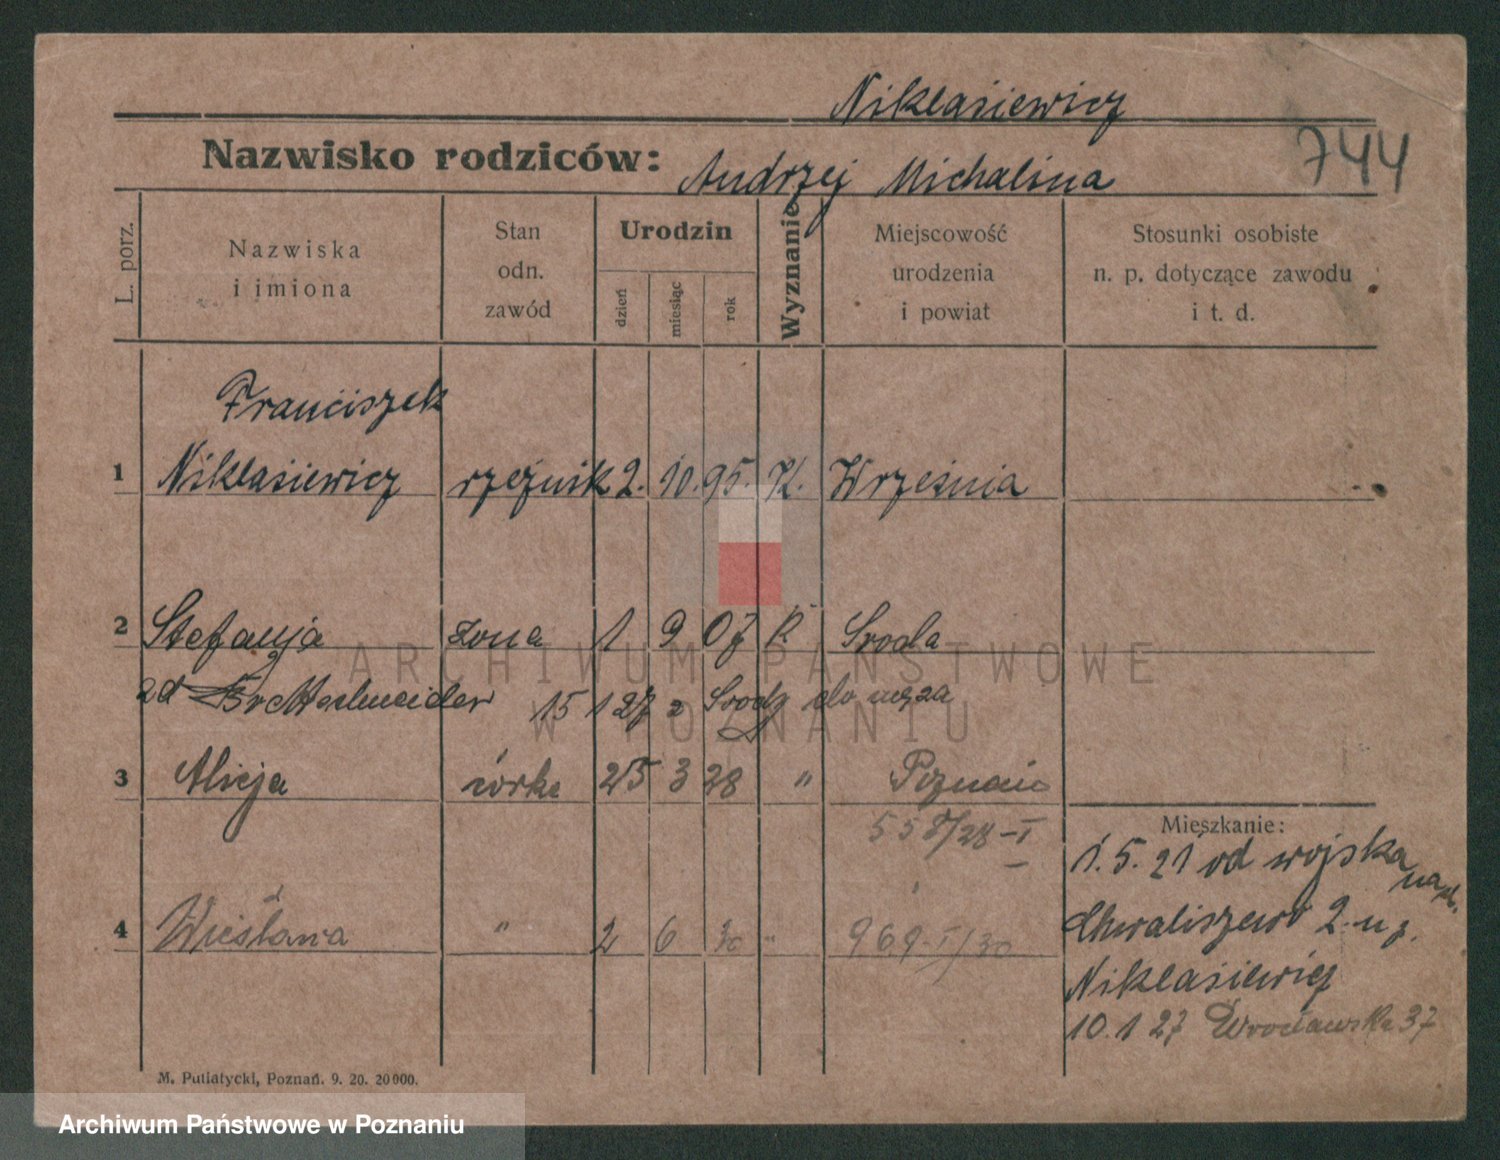 Niklasiewicz
Nazwisko rodziców: Andrzej Michalina
744
L. porz.
Nazwiska
i imiona
Stan
odn.
zawód
Urodzin
dzień
miesiąc
rok
Wyznanie
Miejscowość
urodzenia
i powiat
Stosunki osobiste
n. p. dotyczące zawodu
i t. d.
Franciszek
1 Niklasiewicz rzeźnik 2. 10. 95. K. Września
2 Stefanja żona 1 9 07 K Sroda
zd 15 1 27 z Srody do męża
3 Alicja córka 25 3 28 " Poznań
558/28-I
4 Wiesława " 2 6 30 " 969-I/30
Mieszkanie:
1. 5. 21 od wojska
Chwaliszewo 2.
Niklasiewicz
10. 1 27 Wrocławska 37
M. Putiatycki, Poznań. 9. 20. 20000.
ARCHIWUM PAŃSTWOWE
W POZNANIU
Archiwum Państwowe w Poznaniu